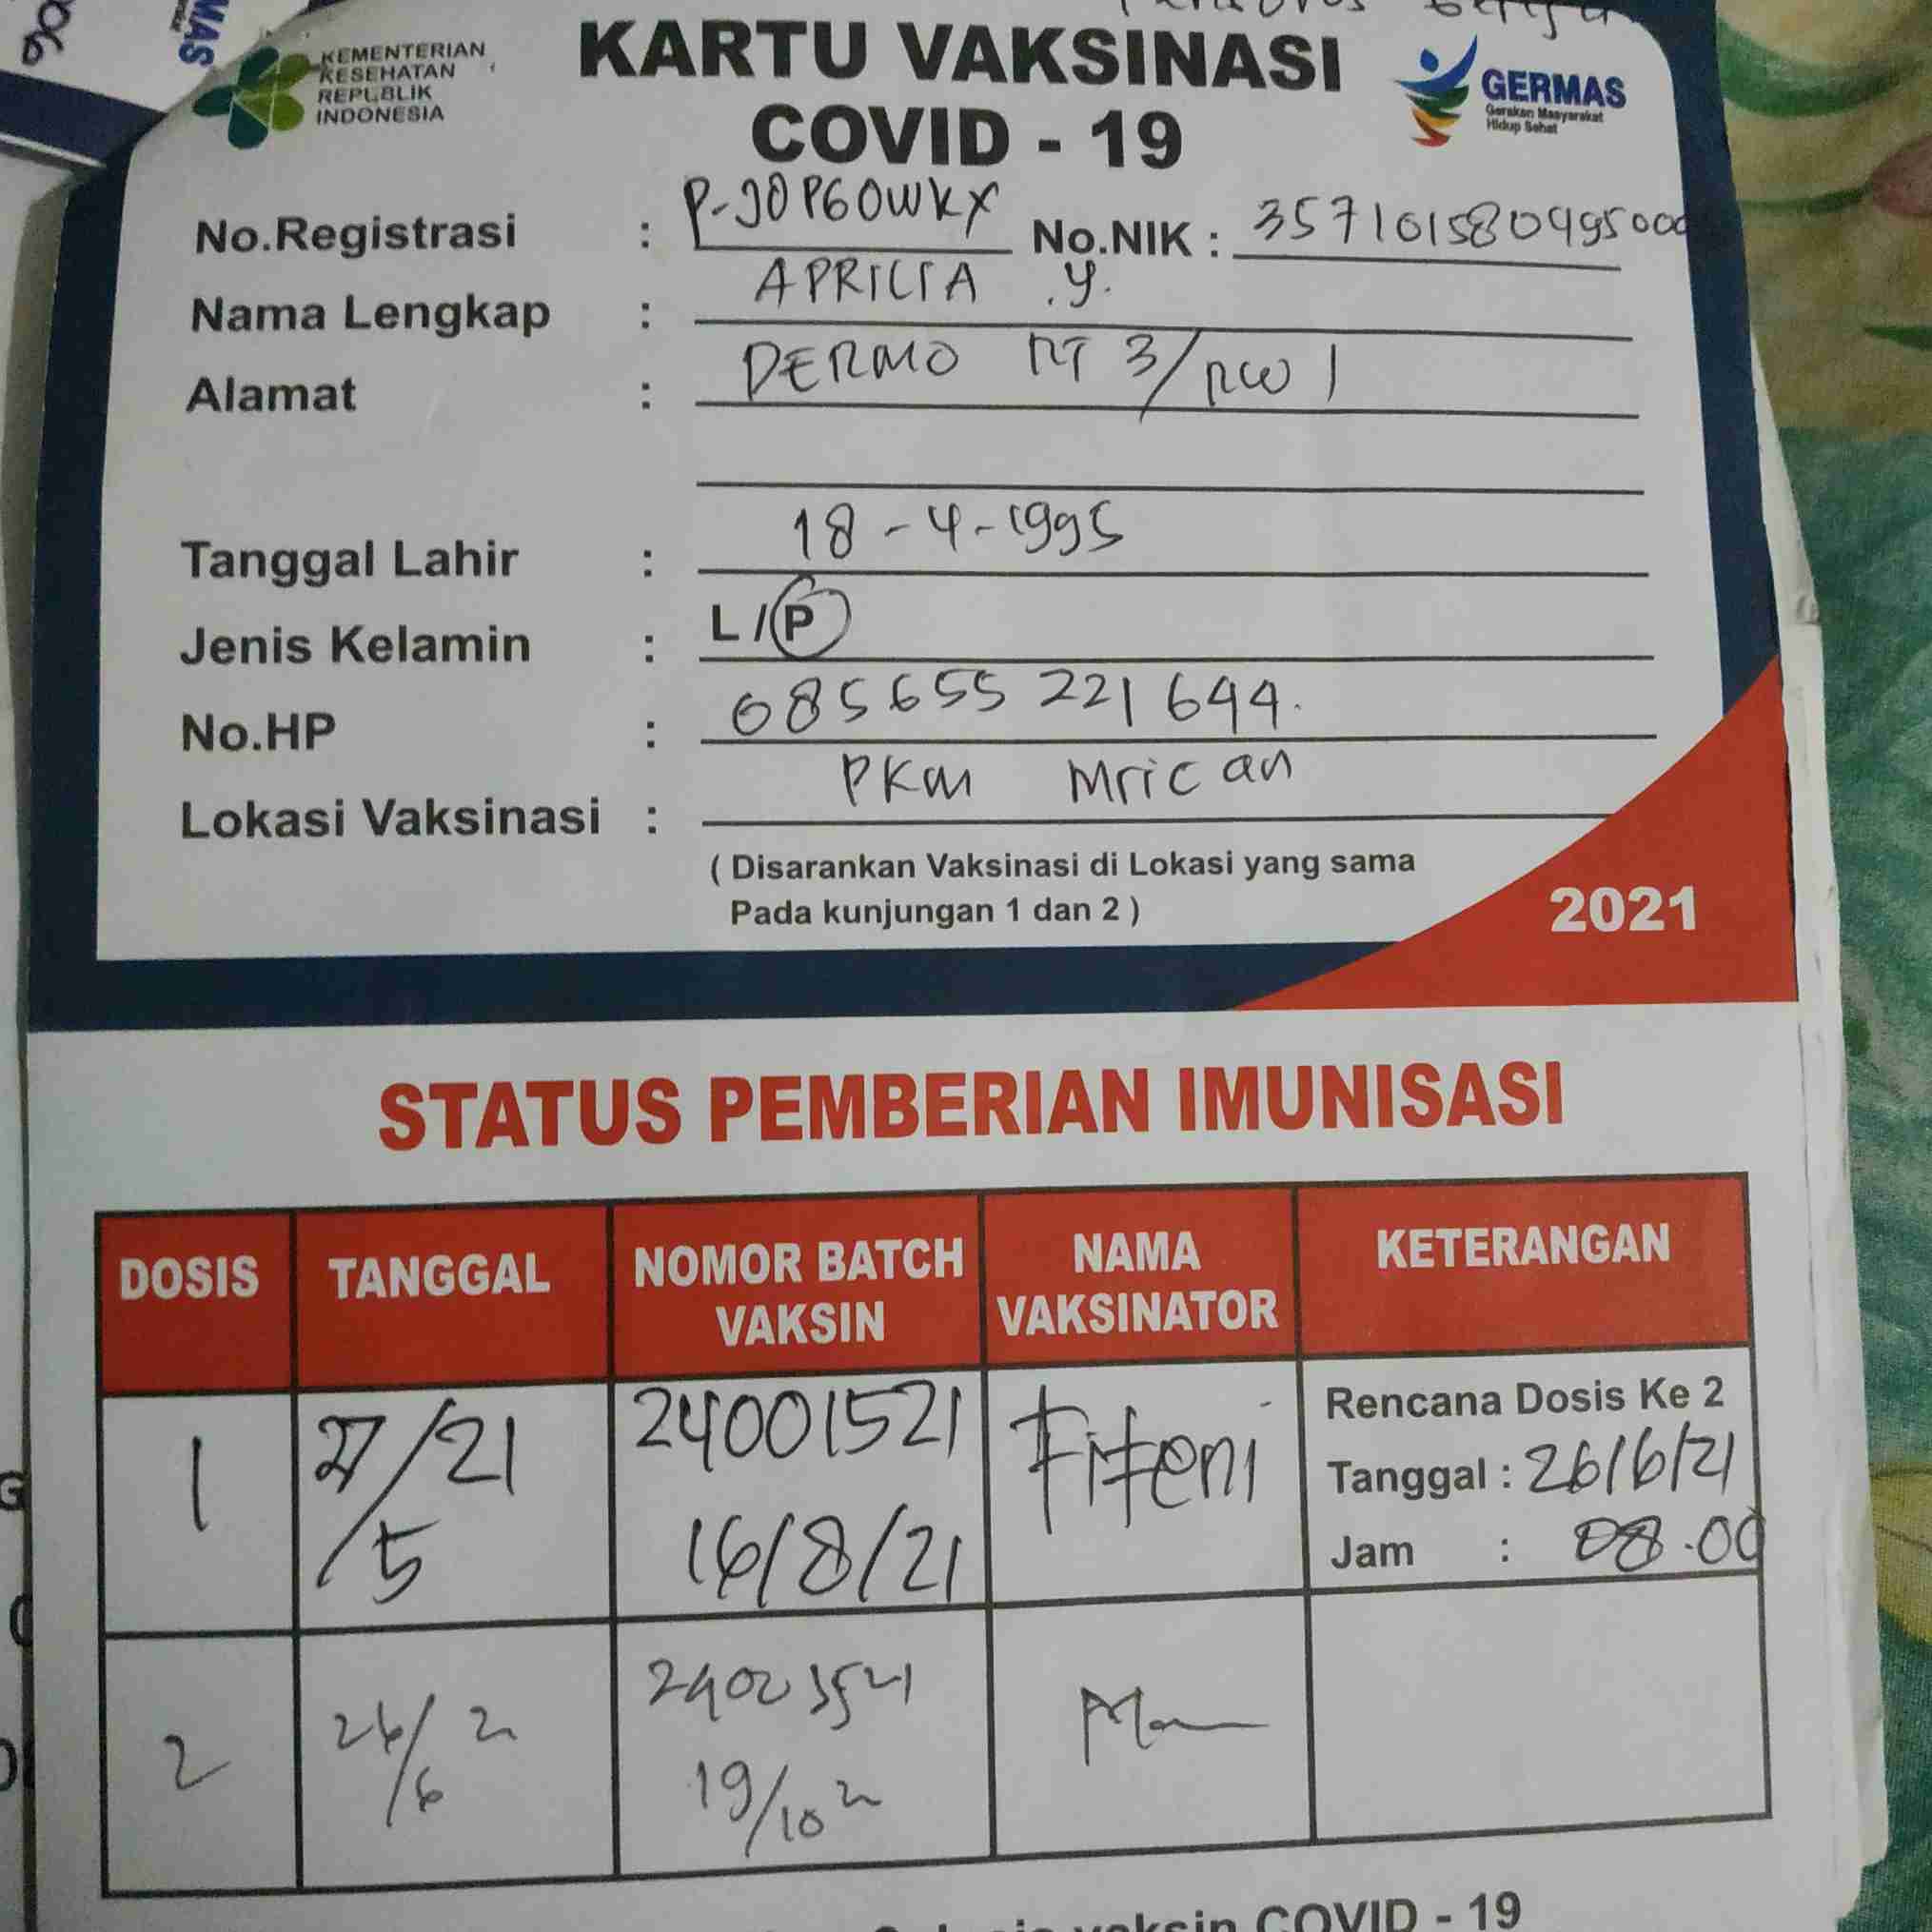 KEMENTERIAN
KESEHATAN
REPUBLIK
INDONESIA
KARTU VAKSINASI
COVID - 19
GERMAS
Gerakan Masyarakat
Hidup Sehat
No.Registrasi : P-J0P60WKX No.NIK : 357101580495000
Nama Lengkap : APRILIA .Y.
Alamat : DERMO RT 3/RW 1
Tanggal Lahir : 18-4-1995
Jenis Kelamin : L/P
No.HP : 085655 221 644.
Lokasi Vaksinasi : PKM Mrican
( Disarankan Vaksinasi di Lokasi yang sama
Pada kunjungan 1 dan 2 )
2021
STATUS PEMBERIAN IMUNISASI
DOSIS TANGGAL NOMOR BATCH VAKSIN NAMA VAKSINATOR KETERANGAN
1 /5 /21 24001521 16/8/21 Rencana Dosis Ke 2
Tanggal : 26/6/21
Jam : 08.00
2 26/6 21 19/10 21
vaksin COVID - 19